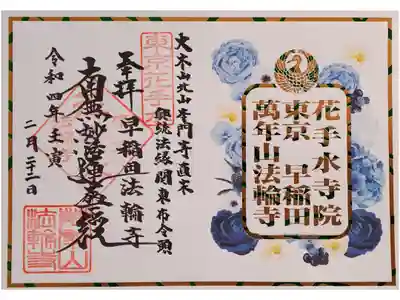 花手水寺院
東京 早稲田
萬年山法輪寺
大本山北山本門寺直末
興統法縁関東布令頭
東京花手
奉拝 早稲田法輪寺
南無妙法蓮華経
令和四年壬寅
二月
法輪寺